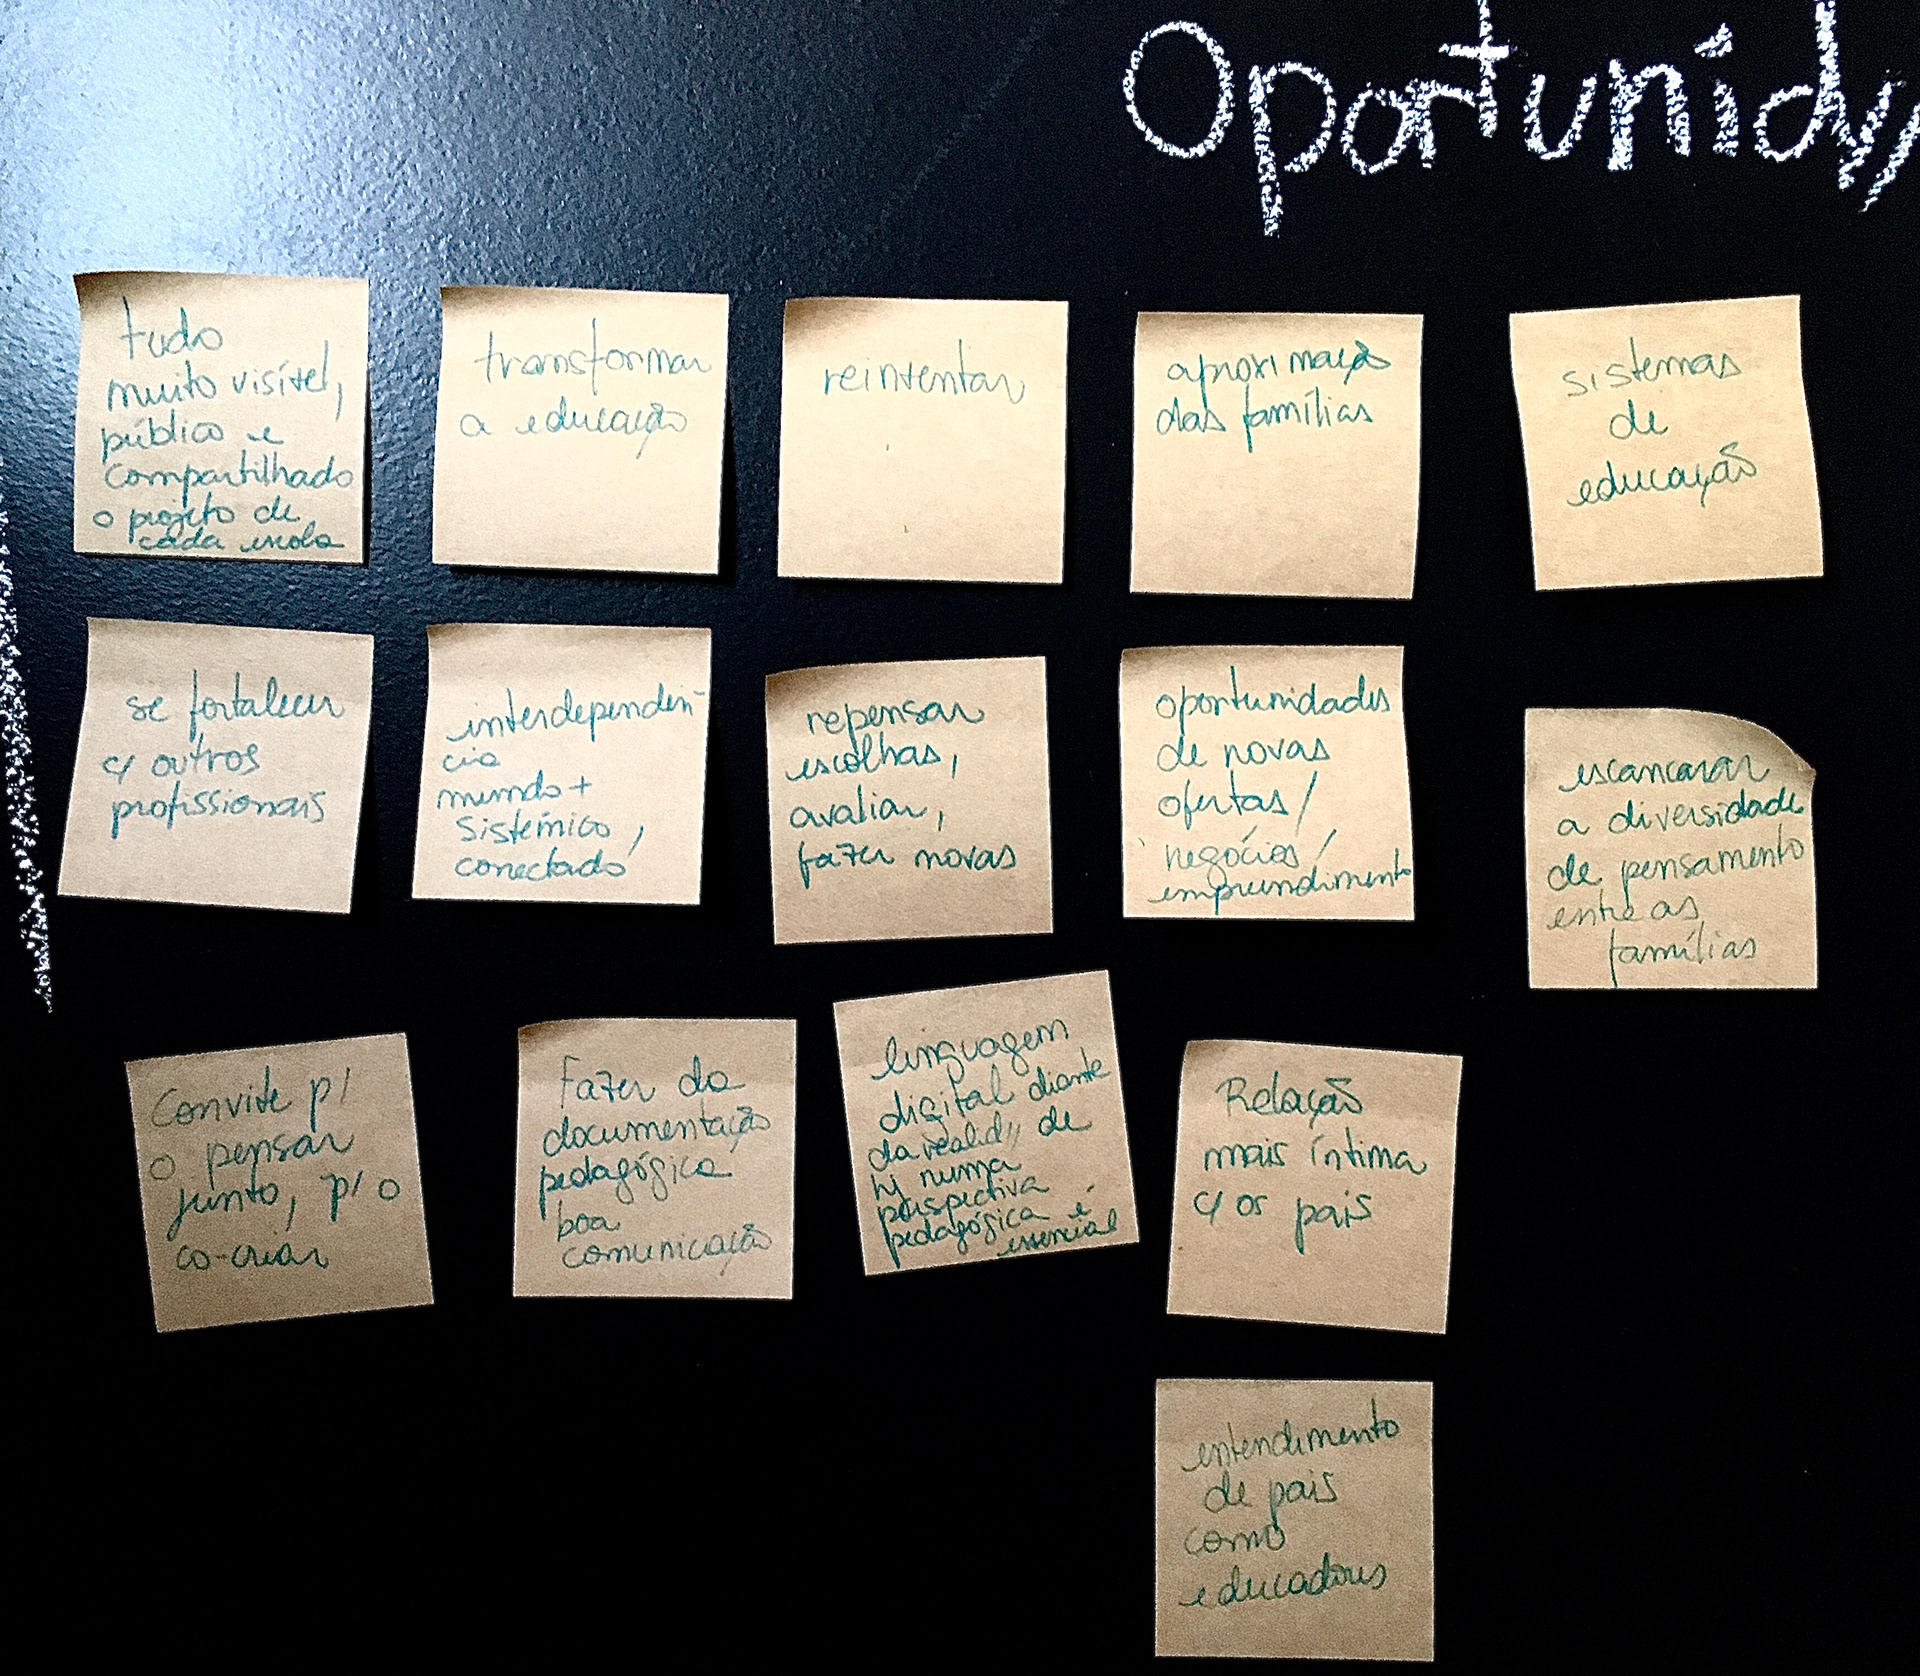 Oportunid//
tudo
muito visível,
público e
compartilhado
o projeto de
cada escola
transformar
a educação
reinventar
aproximação
das famílias
sistemas
de
educação
se fortalecer
c/ outros
profissionais
interdependên-
cia
mundo +
sistêmico,
conectado
repensar
escolhas,
avaliar,
fazer novas
oportunidades
de novas
ofertas/
negócios/
empreendimento
escancarar
a diversidade
de pensamento
entre as
famílias
Convite p/
o pensar
junto, p/ o
co-criar
Fazer da
documentação
pedagógica
boa
comunicação
linguagem
digital diante
da realid// de
hj numa
perspectiva
pedagógica é
essencial
Relação
mais íntima
c/ os pais
entendimento
de pais
como
educadores